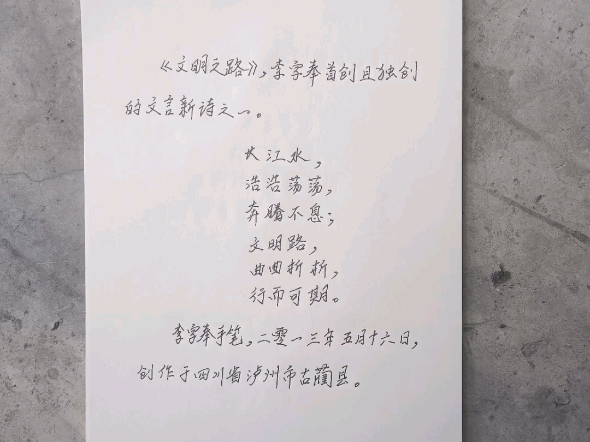 《文明之路》，李字奉首创且独创
的文言新诗之一。
长江水，
浩浩荡荡，
奔腾不息；
文明路，
曲曲折折，
行而可期。
李字奉手笔，二零一三年五月十六日，
创作于四川省泸州市古蔺县。